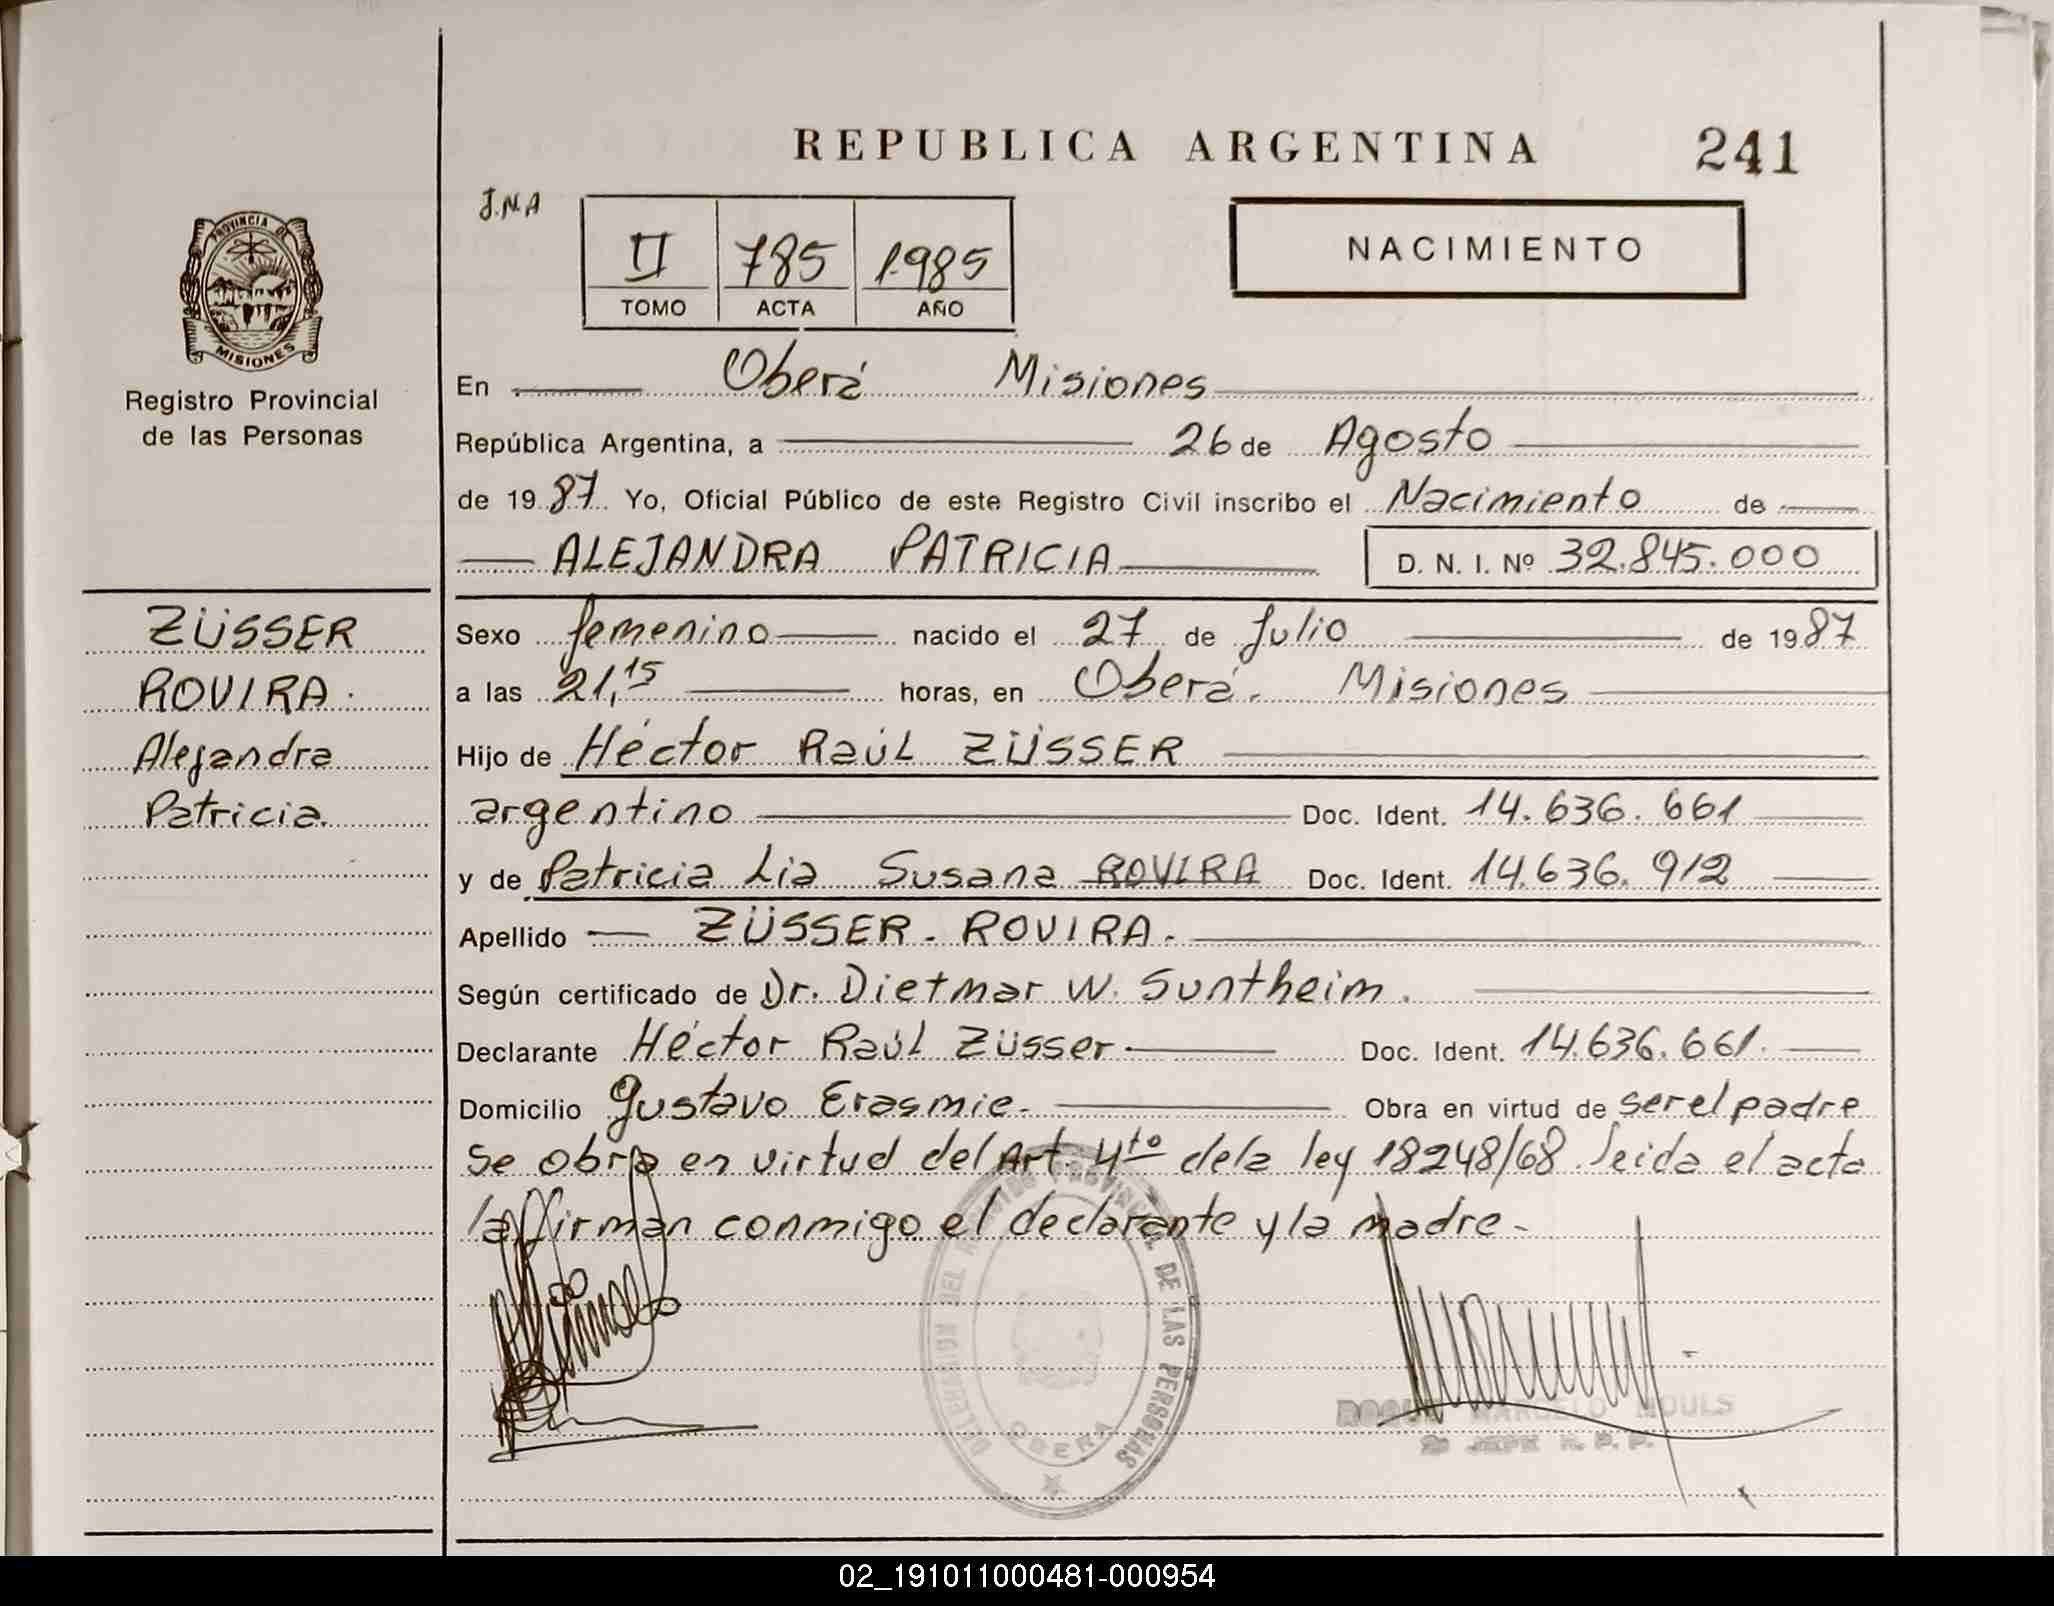 REPUBLICA ARGENTINA 241
J.N.A
II 785 1985
TOMO ACTA AÑO
NACIMIENTO
PROVINCIA DE
MISIONES
Registro Provincial
de las Personas
En Oberá Misiones
República Argentina, a 26 de Agosto
de 1987 Yo, Oficial Público de este Registro Civil inscribo el Nacimiento de
ALEJANDRA PATRICIA D. N. I. Nº 32.845.000
ZÜSSER
ROVIRA.
Alejandra
Patricia.
Sexo femenino nacido el 27 de Julio de 1987
a las 21,15 horas, en Oberá. Misiones
Hijo de Héctor Raúl ZÜSSER
argentino Doc. Ident. 14.636.661
y de Patricia Lia Susana ROVIRA Doc. Ident. 14.636.912
Apellido ZÜSSER - ROVIRA.
Según certificado de Dr. Dietmar W. Suntheim.
Declarante Héctor Raúl Züsser Doc. Ident. 14.636.661.
Domicilio Gustavo Erasmie. Obra en virtud de ser el padre
Se obra en virtud del Art. 4to dela ley 18248/68. leida el acta
la firman conmigo el declarante y la madre-
DELEGACION DEL REGISTRO PROVINCIAL DE LAS PERSONAS
OBERA
ROQUE MARCELO MOULS
2º JEFE R. P. P.
02_191011000481-000954